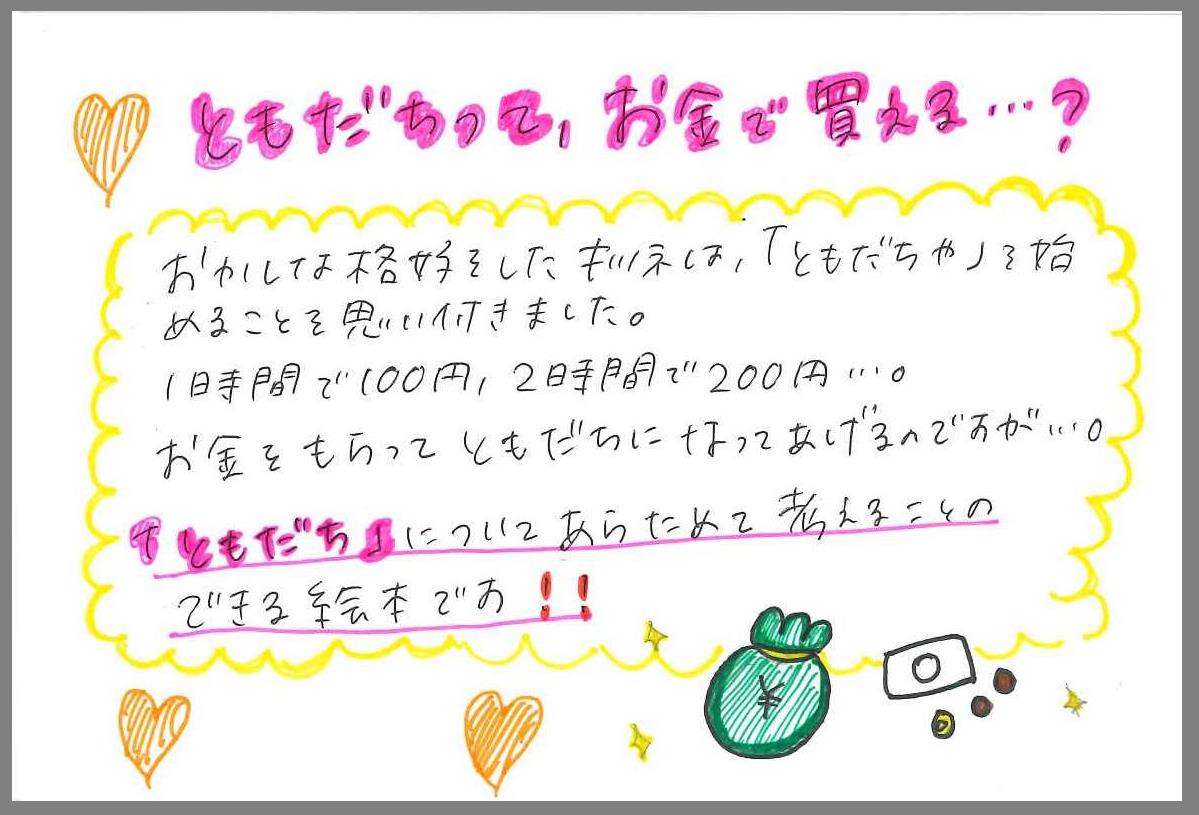 ともだちって,お金で買える…?
おかしな格好をしたキツネは,「ともだちや」を始
めることを思い付きました。
1時間で100円,2時間で200円…。
お金をもらってともだちになってあげるのですが…。
「ともだち」についてあらためて考えることの
できる絵本です!!
¥